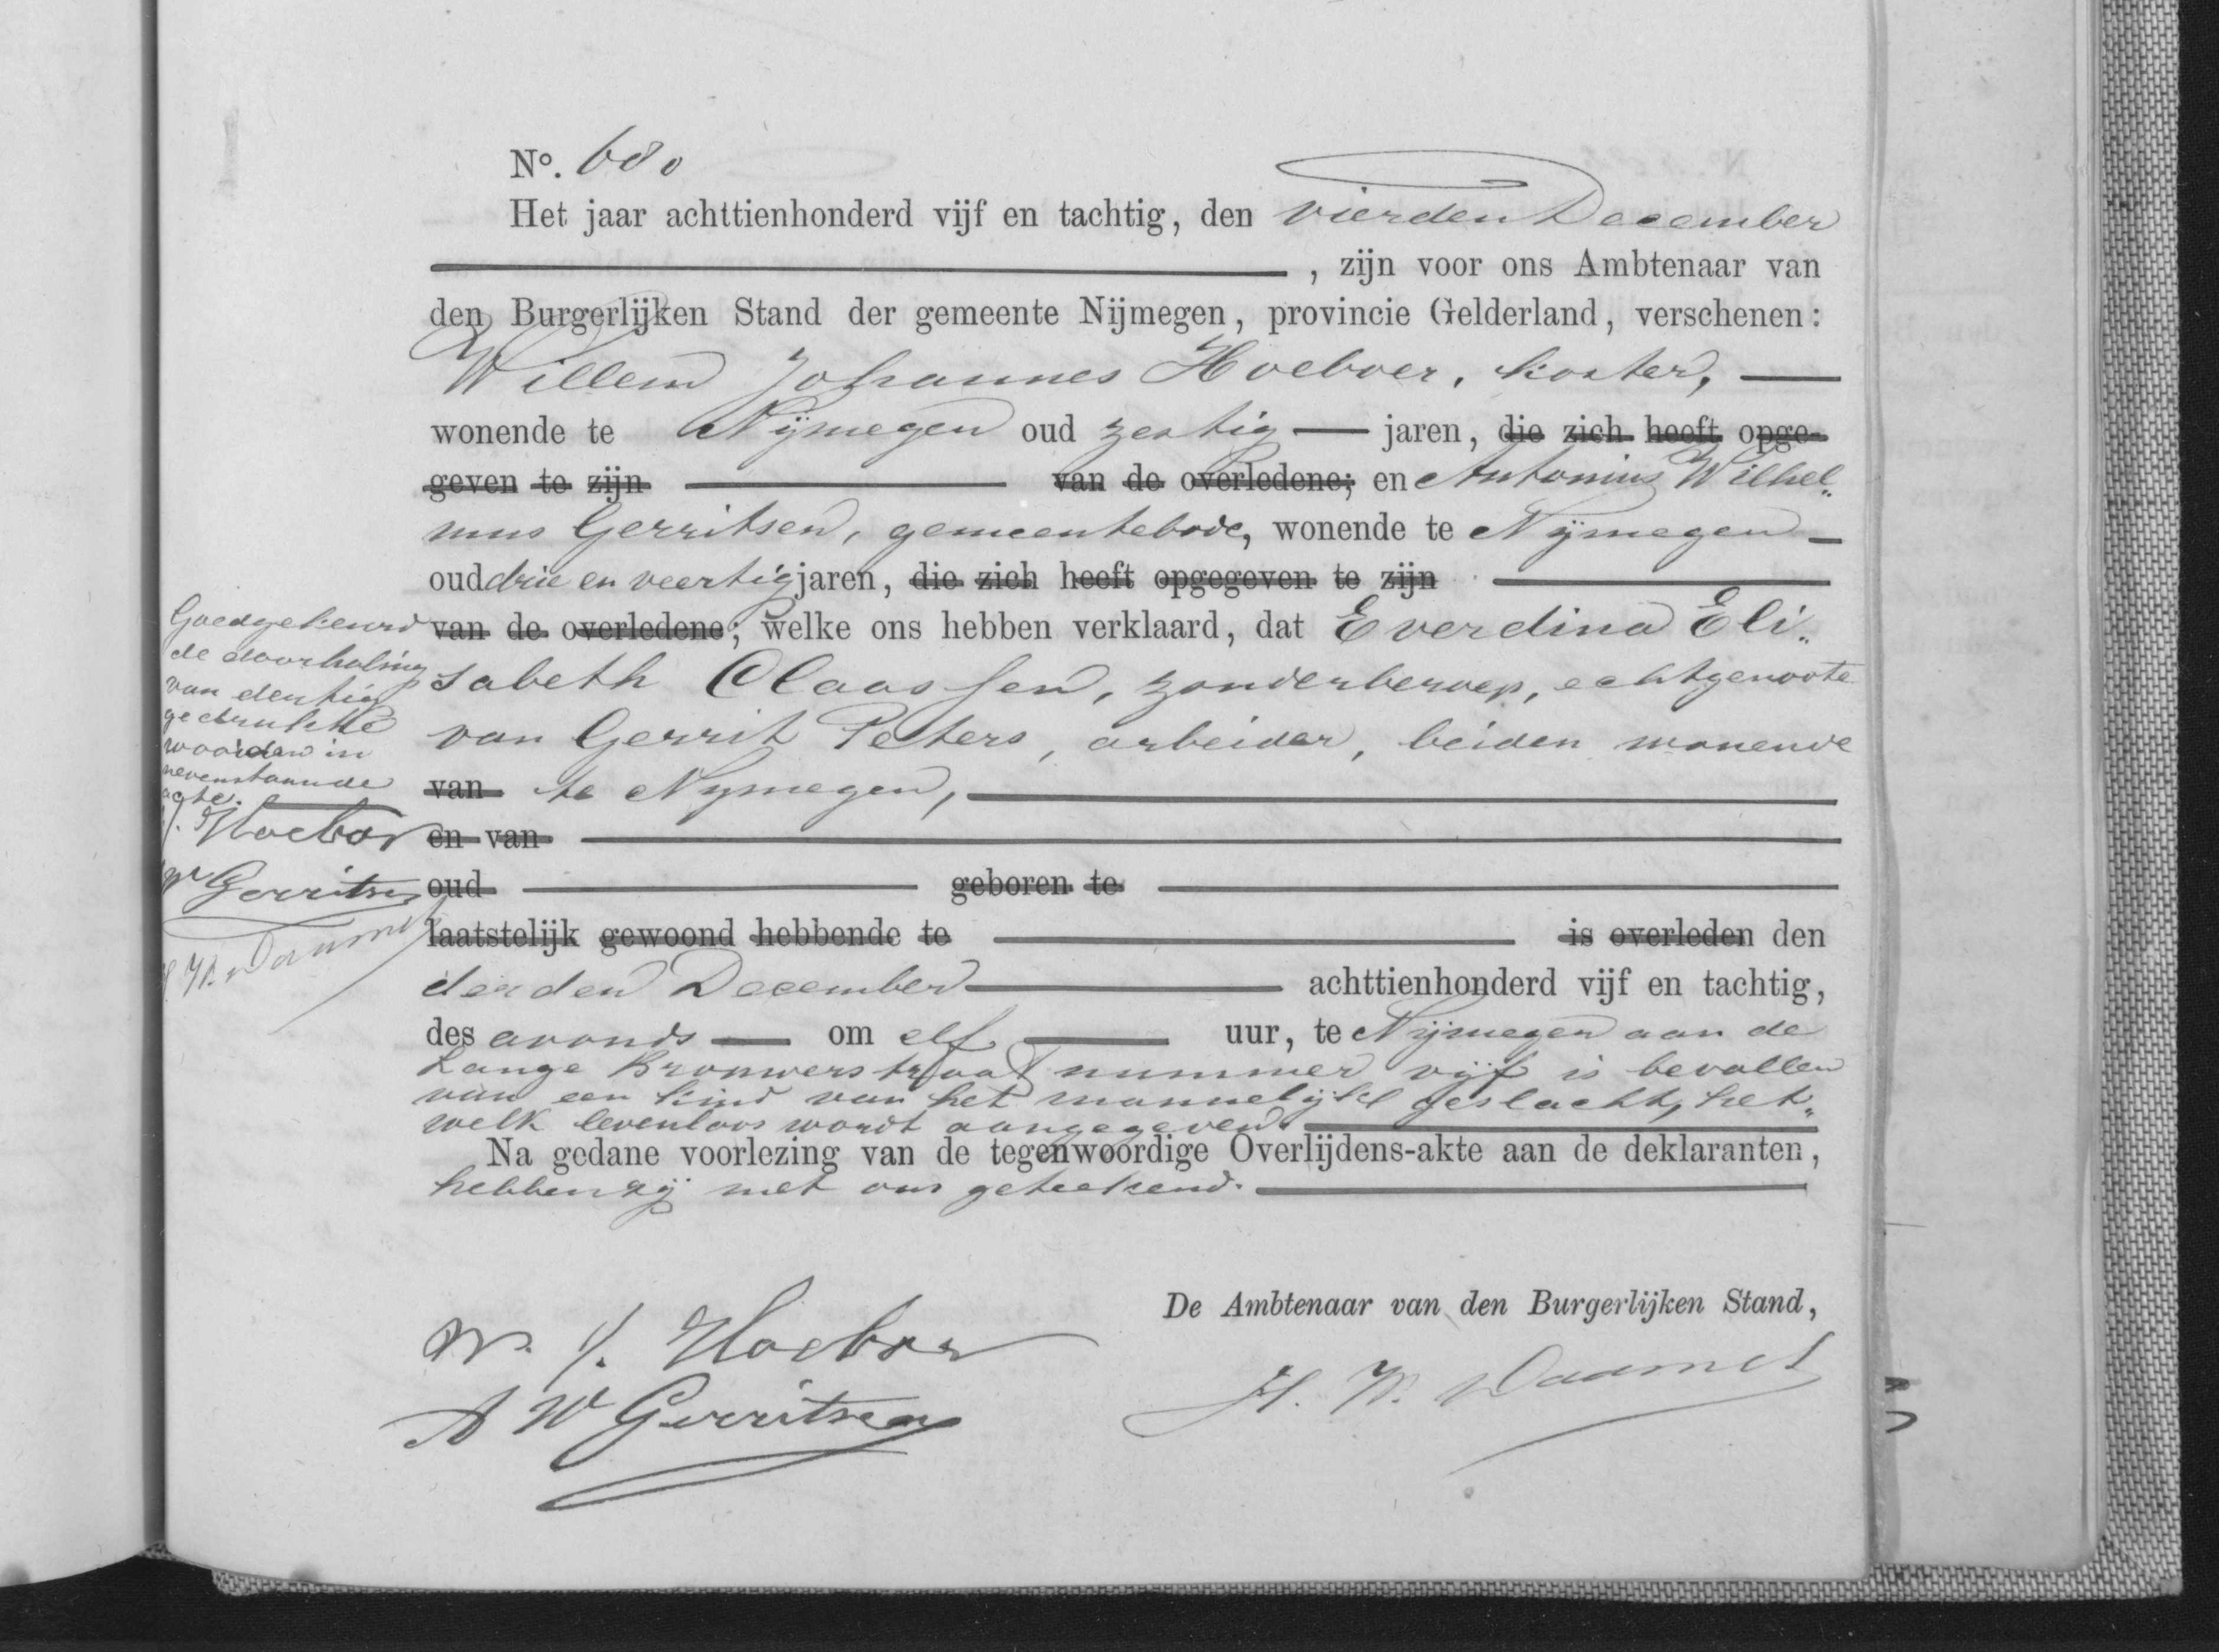 No. 680
Het jaar achttienhonderd vijf en tachtig, den vierden December
, zijn voor ons Ambtenaar van
den Burgerlijken Stand der gemeente Nijmegen, provincie Gelderland, verschenen:
Willem Johannes Hoeboer, koster,
wonende te Nijmegen oud zestig jaren, die zich heeft opge-
geven te zijn van de overledene; en Antonius Wilhel„
mus Gerritsen, gemeentebode, wonende te Nijmegen
oud drie en veertig jaren, die zich heeft opgegeven te zijn
van de overledene; welke ons hebben verklaard, dat Everdina Eli„
sabeth Claassen, zonder beroep, echtgenoote
van Gerrit Peters, arbeider, beiden wonende
van te Nijmegen,
en van
oud geboren te
laatstelijk gewoond hebbende te is overleden den
derden December achttienhonderd vijf en tachtig,
des avonds om elf uur, te Nijmegen aan de
Lange Brouwerstraat nummer vijf is bevallen
van een kind van het mannelijk geslacht, het„
welk levenloos wordt aangegeven.
Na gedane voorlezing van de tegenwoordige Overlijdens-akte aan de deklaranten,
hebben zij met ons geteekend.
Goedgekeurd
de doorhaling
van dertig
gedrukte
woorden in
nevenstaande
acte.
J. Hoeboer
W Gerritsen
De Ambtenaar van den Burgerlijken Stand,
W. J. Hoeboer
A W Gerritsen